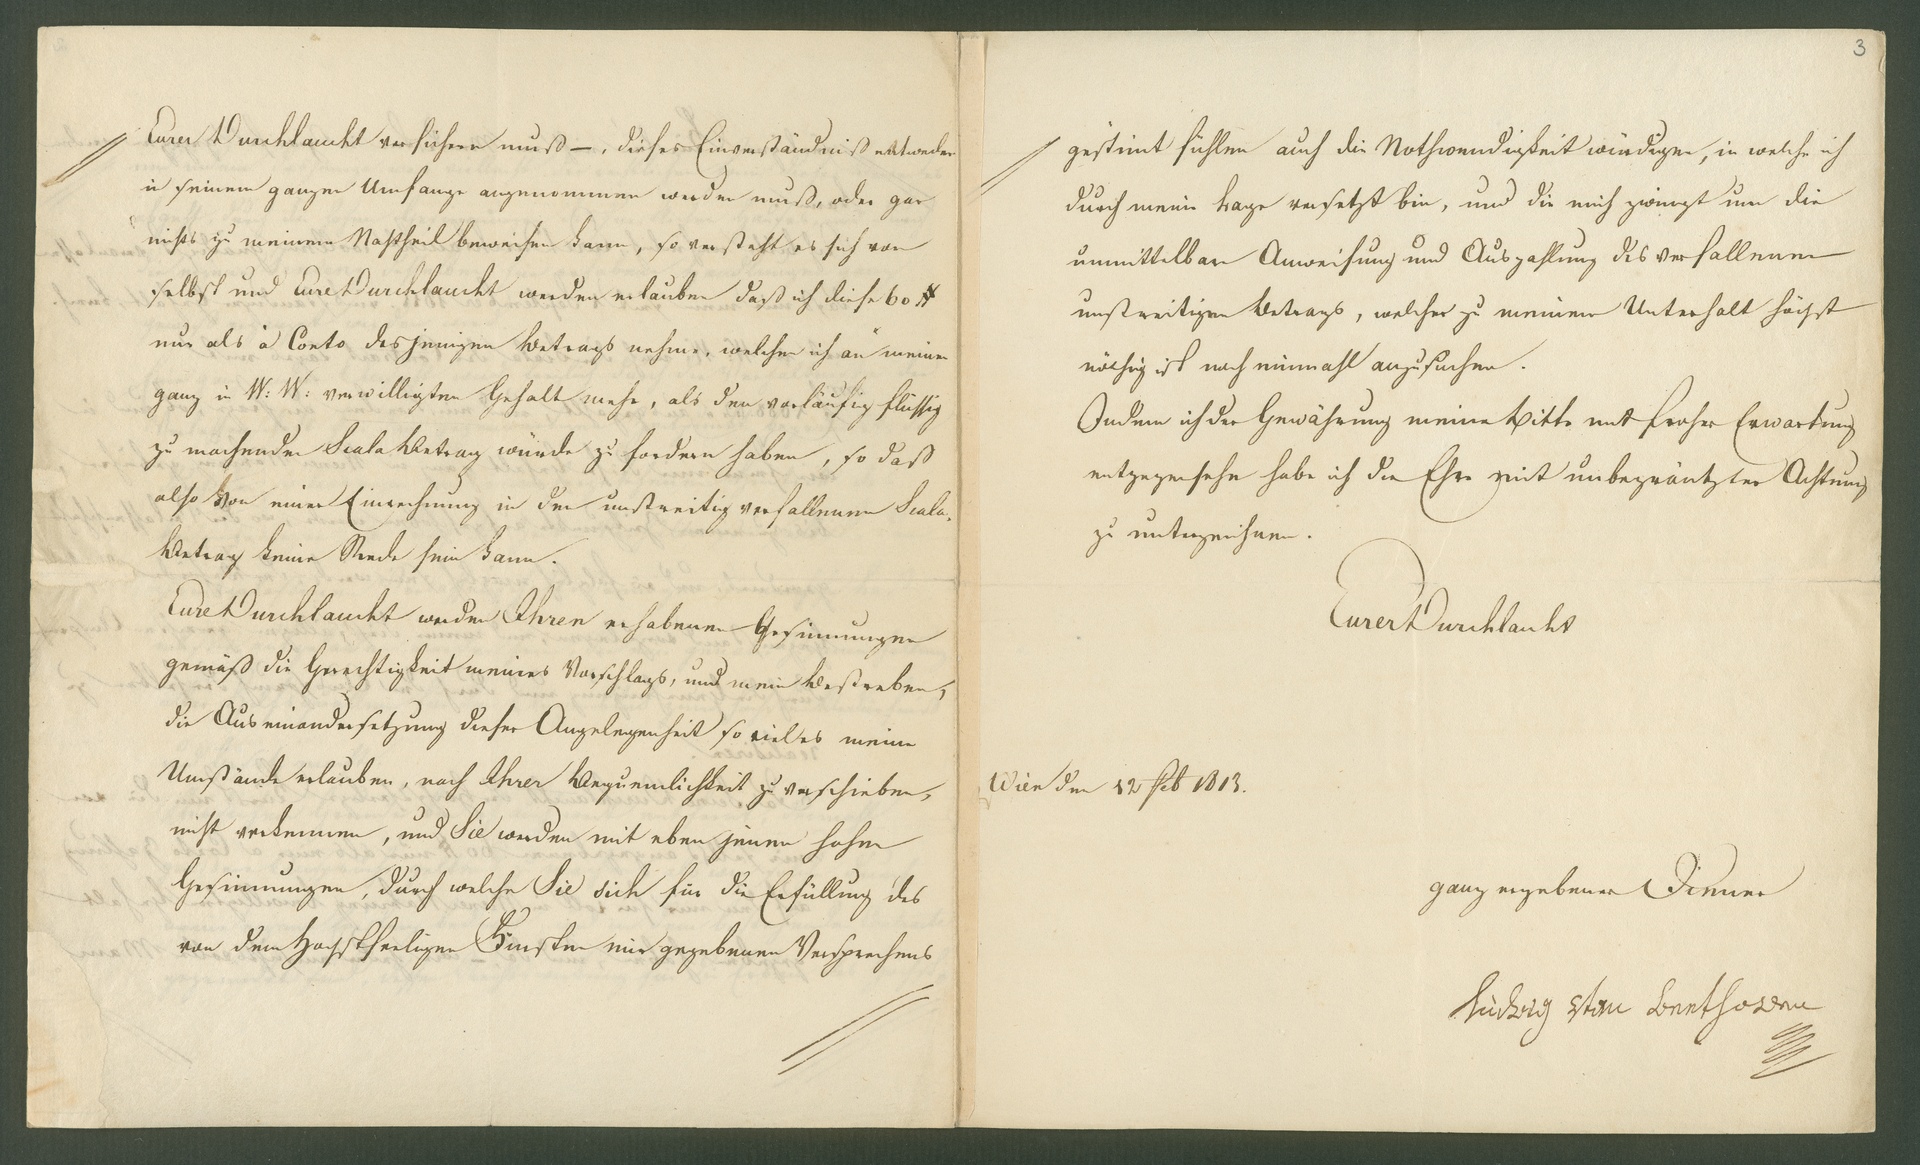 Eurer Durchlaucht versichern muß —, dieses Einverständniß entweder
in seinem ganzen Umfange angenommen werden muß, oder gar
nichts zu meinem Nachtheil beweisen kann, so versteht es sich von
selbst und Eure Durchlaucht werden erlauben daß ich diese 60 #
nur als à Conto desjenigen Betrags nehme, welchen ich an meinen
ganz in W: W: verwilligten Gehalt mehr, als den vorläufig flüssig
zu machenden Scala Betrag würde zu fordern haben, so daß
also von einer Einrechnung in den unstreitig verfallenen Scala-
Betrag keine Rede sein kann.
Eure Durchlaucht werden Ihren erhabenen Gesinnungen
gemäß die Gerechtigkeit meines Vorschlags, und mein Bestreben,
die Auseinandersetzung dieser Angelegenheit so viel es meine
Umstände erlauben, nach Ihrer Bequemlichkeit zu verschieben,
nicht verkennen, und Sie werden mit eben jenen hohen
Gesinnungen, durch welche Sie sich für die Erfüllung des
von dem Hochstseeligen Fürsten mir gegebenen Versprechens
3
gestimt fühlen auch die Nothwendigkeit würdigen, in welche ich
durch meine Lage versetzt bin, und die mich zwingt um die
unmittelbare Anweisung und Auszahlung des verfallenen
unstreitigen Betrags, welcher zu meinem Unterhalt höchst
nöthig ist noch einmahl anzusuchen.
Indem ich der Gewährung meiner Bitte mit froher Erwartung
entgegensehe habe ich die Ehre mit unbegränzter Achtung
zu unterzeichnen.
Eurer Durchlaucht
Wien den 12 Feb 1813.
ganz ergebener Diener
Ludwig van Beethoven